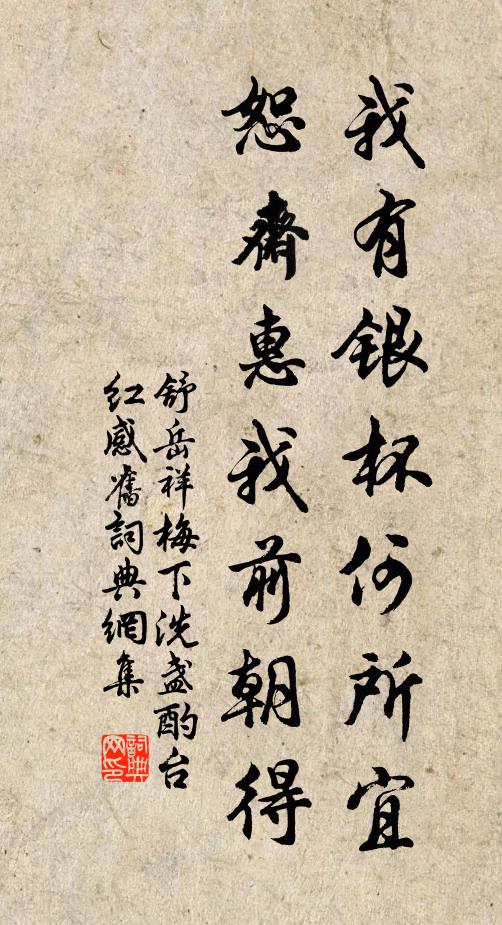 我有銀杯何所宜
恕齋惠我前朝得
舒岳祥梅下洗盞酌台
紅感舊詞典網集
詞典
网印